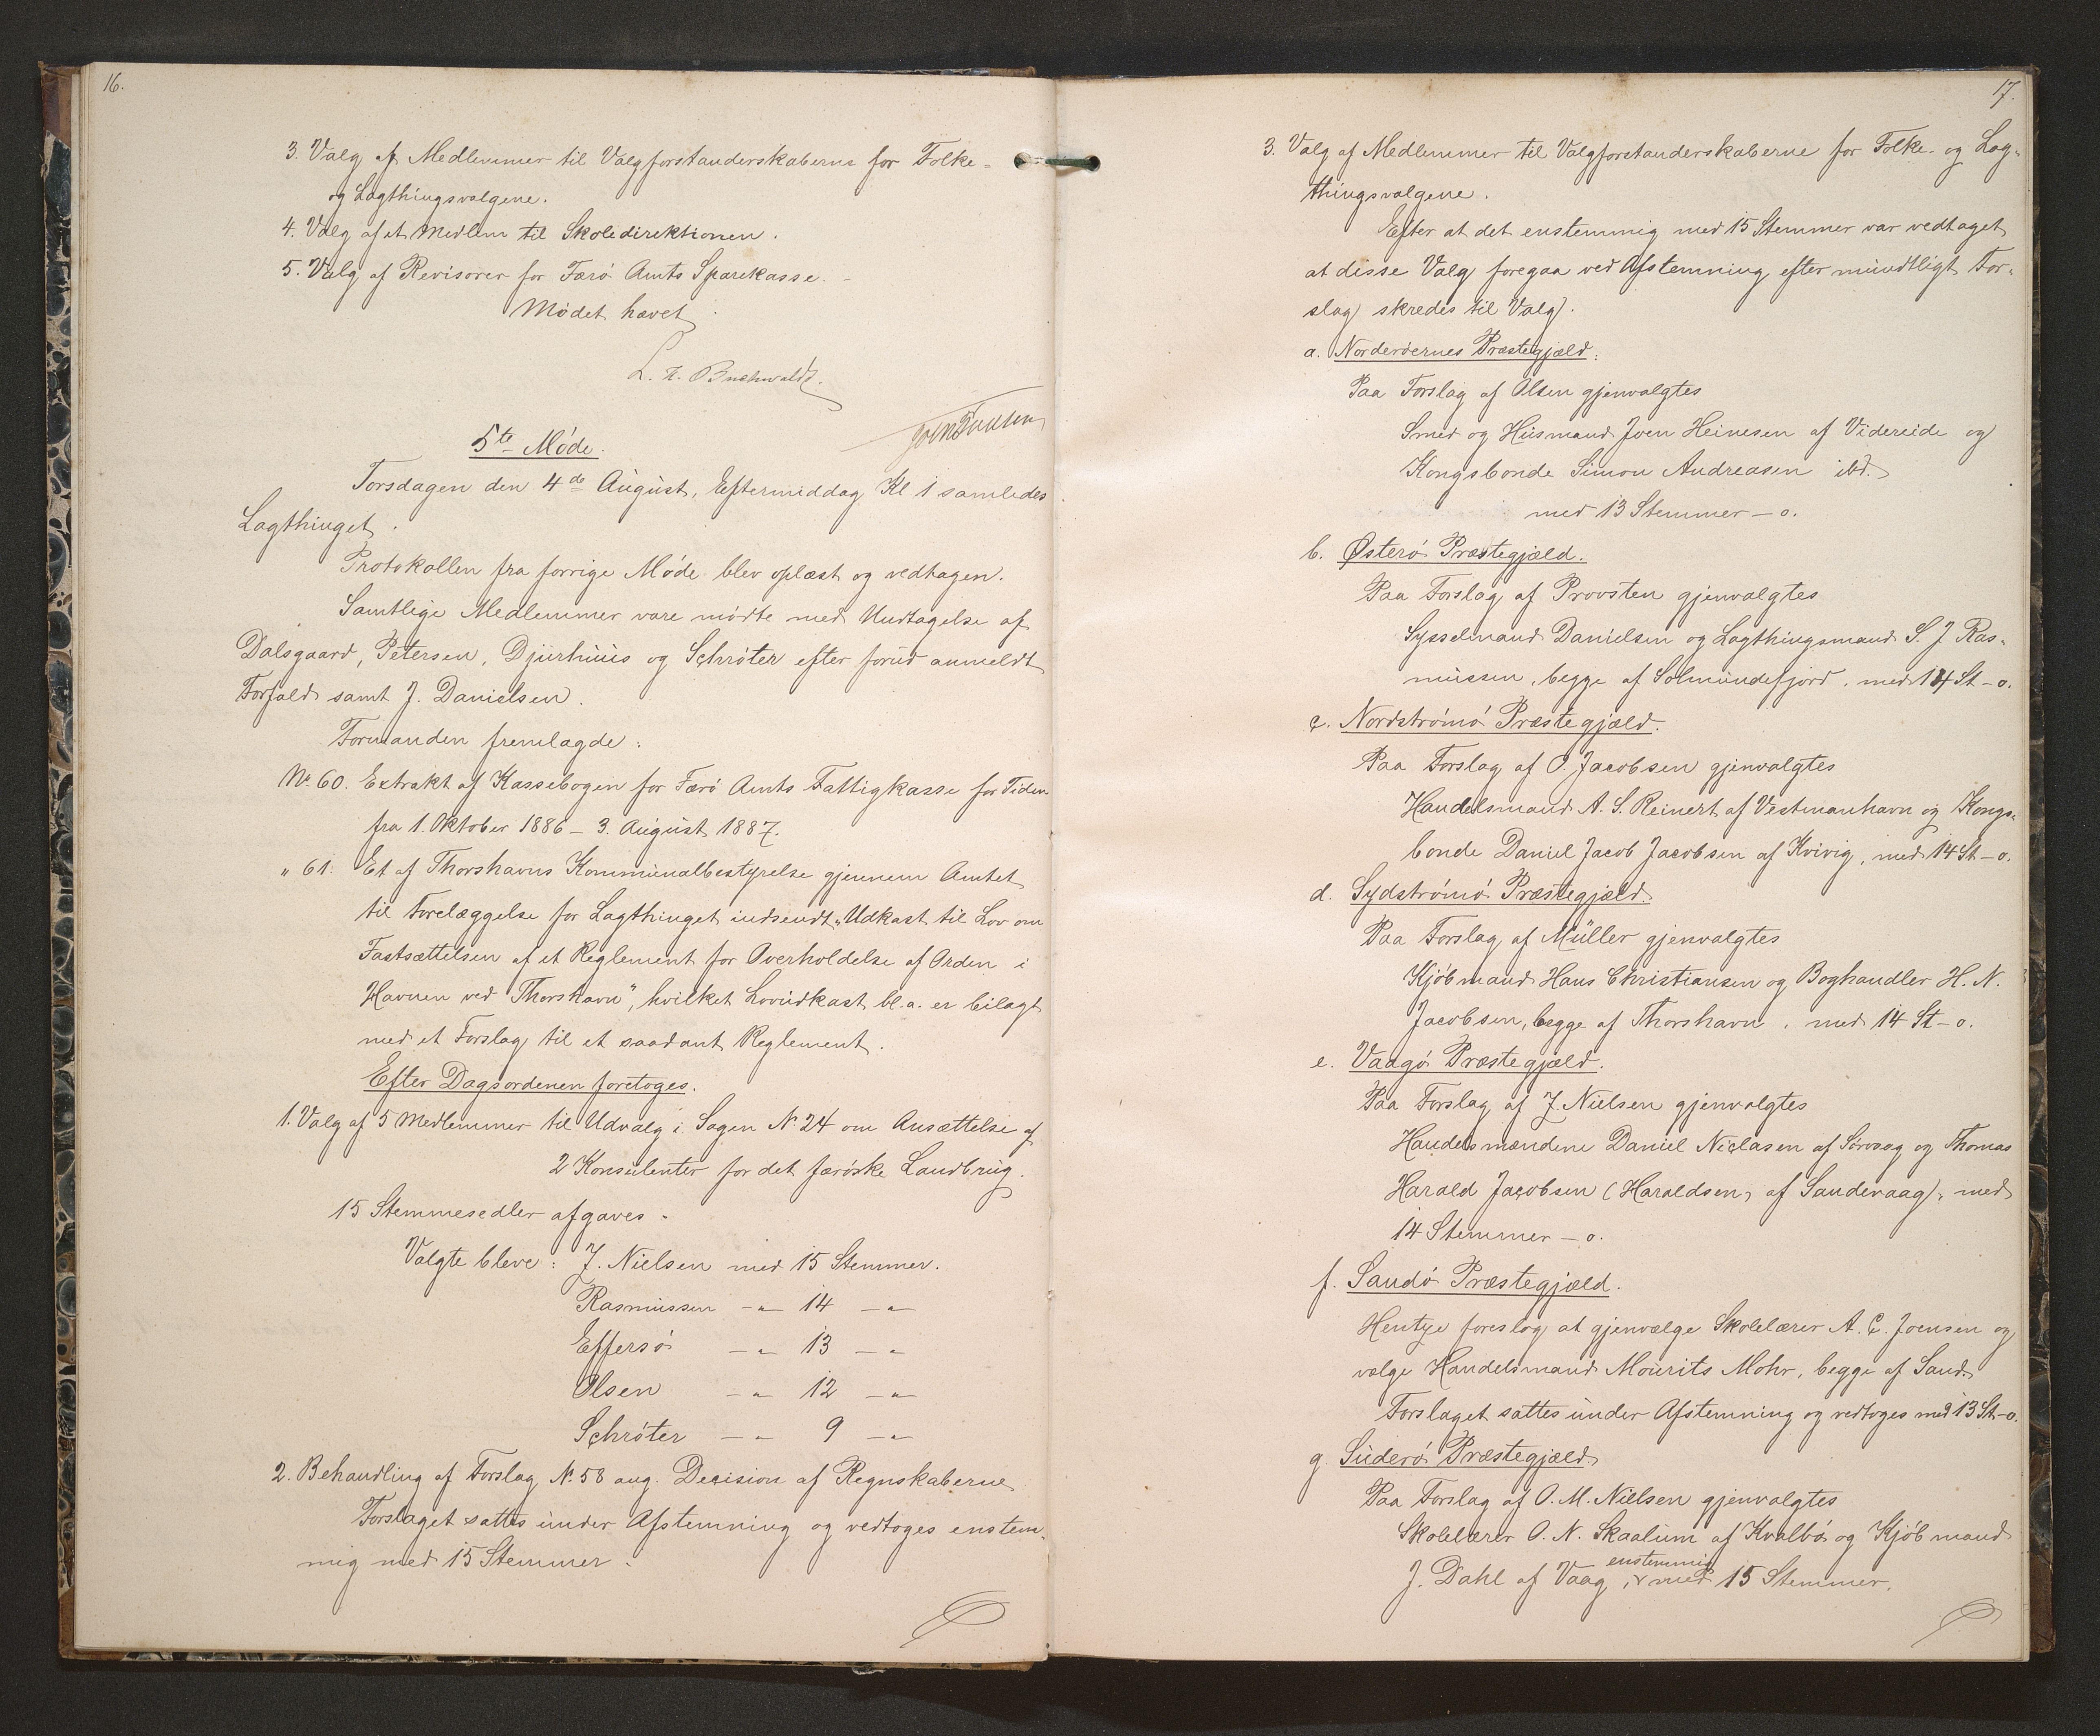 16.
3. Valg af Medlemmer til Valgforstanderskaberne for Folke-
og Lagthingsvalgene.
4. Valg af et Medlem til Skoledirektionen.
5. Valg af Revisorer for Færö Amts Sparekasse.
Mödet hævet
L. H. Buchwaldt.
5te Möde.
Torsdagen den 4de August, Eftermiddag Kl 1 samledes
Lagthinget.
Protokollen fra forrige Möde blev oplæst og vedtagen.
Samtlige Medlemmer vare mödte med Undtagelse af
Dalsgaard, Petersen, Djurhuus og Schröter efter forud anmeldt
Forfald samt J. Danielsen.
Formanden fremlagde:
No. 60. Extrakt af Kassebogen for Færö Amts Fattigkasse for Tiden
fra 1. Oktober 1886 – 3. August 1887.
" 61. Et af Thorshavns Kommunalbestyrelse gjennem Amtet
til Forelæggelse for Lagthinget indsendt „Udkast til Lov om
Fastsættelsen af et Reglement for Overholdelse af Orden i
Havnen ved Thorshavn", hvilket Lovudkast bl. a. er bilagt
med et Forslag til et saadant Reglement.
Efter Dagsordenen foretoges.
1. Valg af 5 Medlemmer til Udvalg i Sagen No 24 om Ansættelse af
2 Konsulenter for det færöske Landbrug.
15 Stemmesedler afgaves.
Valgte bleve: J. Nielsen med 15 Stemmer.
Rasmussen -"- 14 -"-
Effersö -"- 13 -"-
Olsen -"- 12 -"-
Schröter -"- 9 -"-
2. Behandling af Forslag No. 58 ang. Decision af Regnskaberne
Forslaget sattes under Afstemning og vedtoges enstem-
mig med 15 Stemmer.
17.
3. Valg af Medlemmer til Valgforstanderskaberne for Folke- og Lag-
thingsvalgene.
Efter at det enstemmig med 15 Stemmer var vedtaget
at disse Valg foregaa ved Afstemning efter mundtligt For-
slag skredes til Valg.
a. Norderöernes Præstegjæld.
Paa Forslag af Olsen gjenvalgtes
Smed og Husmand Joen Heinesen af Videreide og
Kongsbonde Simon Andreasen ibd.
med 13 Stemmer – o.
b. Østerö Præstegjæld.
Paa Forslag af Provsten gjenvalgtes
Sysselmand Danielsen og Lagthingsmand S. J. Ras-
mussen, begge af Solmundefjord, med 14 St – o.
c. Nordströmö Præstegjæld.
Paa Forslag af O. Jacobsen gjenvalgtes
Handelsmand A. S. Reinert af Vestmanhavn og Kongs-
bonde Daniel Jacob Jacobsen af Kvivig, med 14 St – o.
d. Sydströmö Præstegjæld.
Paa Forslag af Müller gjenvalgtes
Kjöbmand Hans Christiansen og Boghandler H. N.
Jacobsen, begge af Thorshavn, med 14 St – o.
e. Vaagö Præstegjæld.
Paa Forslag af J. Nielsen gjenvalgtes
Handelsmændene Daniel Niclasen af Sörvaag og Thomas
Harald Jacobsen (Haraldsen, af Sandevaag), med
14 Stemmer – o.
f. Sandö Præstegjæld.
Hentze foreslog at gjenvælge Skolelærer A. C. Joensen og
vælge Handelsmand Mourits Mohr, begge af Sand.
Forslaget sattes under Afstemning og vedtoges med 13 St – o.
g. Suderö Præstegjæld
Paa Forslag af O. M. Nielsen gjenvalgtes
Skolelærer O. N. Skaalum af Kvalbö og Kjöbmand
enstemmig
J. Dahl af Vaag, med 15 Stemmer.